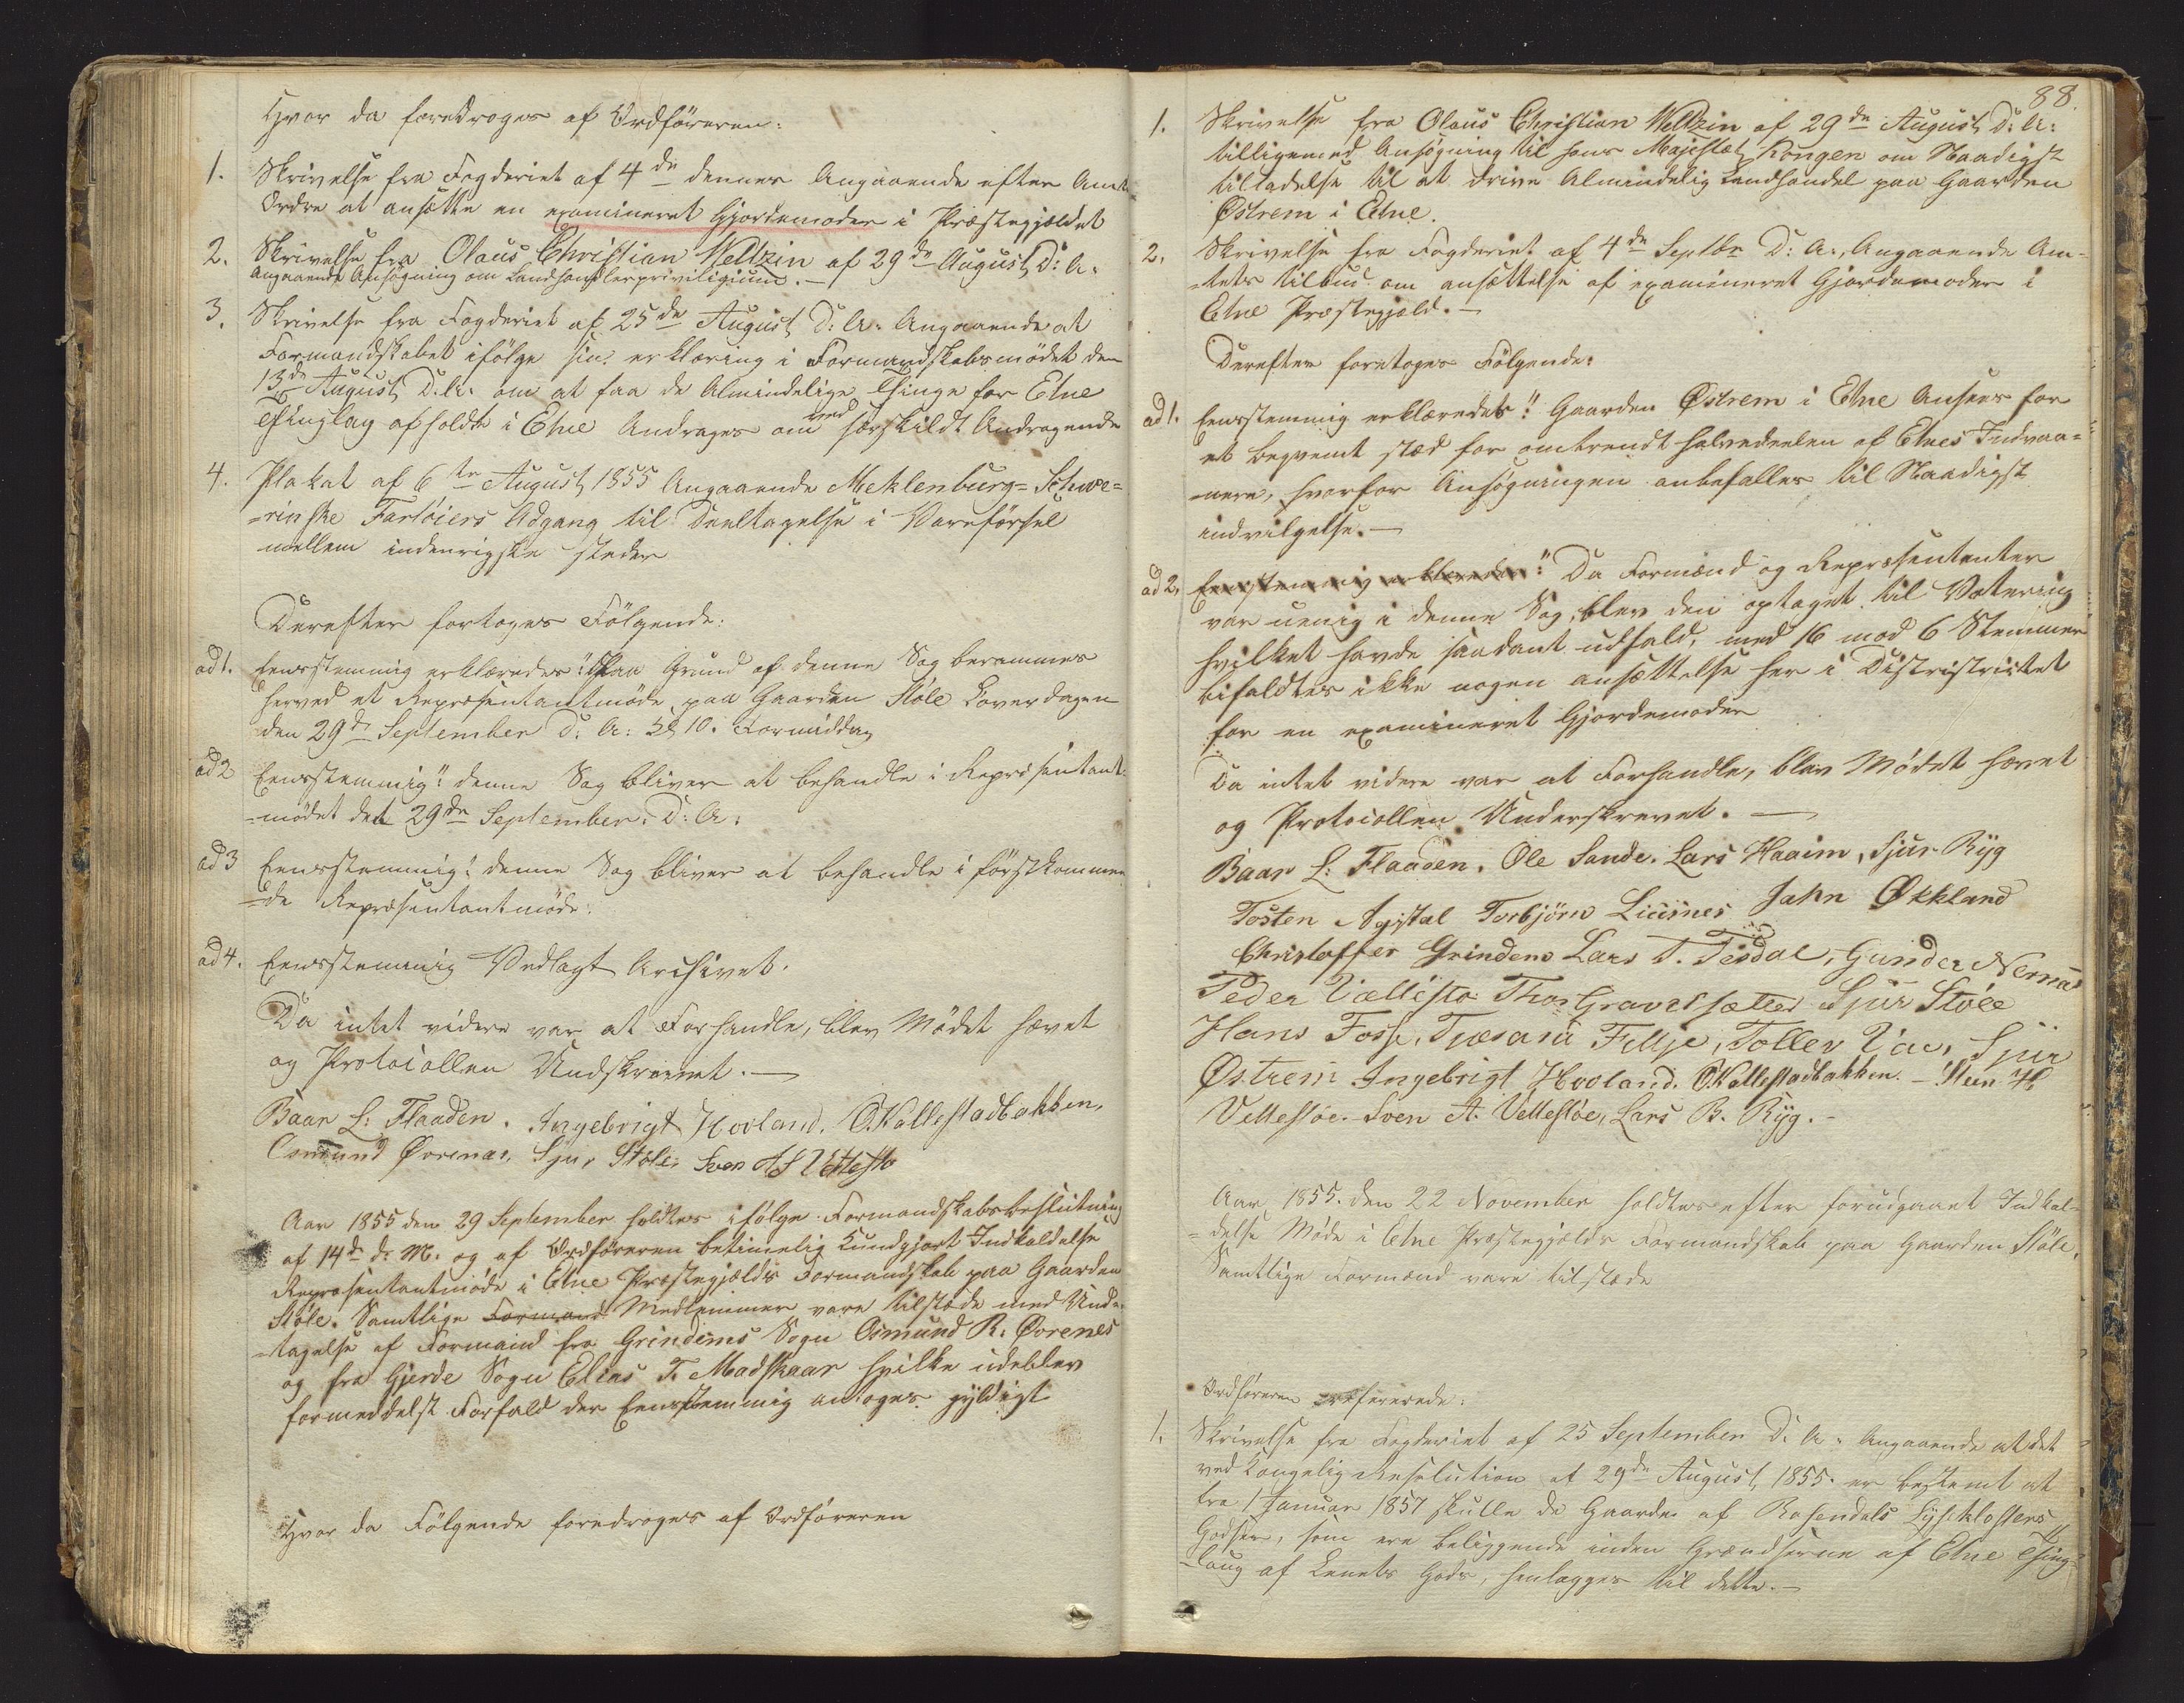 Hvor da foredroges af Ordföreren:
1. Skrivelse fra Fogderiet af 4de dennes Angaaende efter Amt
Ordre at ansætte en examineret Gjordemoder i Præstegjældet
2. Skrivelse fra Olaus Christian Weltzin af 29de August D: A:
angaaende Ansøgning om Landhandlerpriviligium. —
3. Skrivelse fra Fogderiet af 25de August D: A: Angaaende at
Formandskabet ifölge sin erklæring i Formandskabsmödet den
13de August D: A: om at faa de Almindelige Thinge for Etne
Thinglag afholdte i Etne Andrages om med særskildt Andragende
4. Plakat af 6te August 1855 Angaaende Meklenburg=Schwe=
=rinske Fartöiers Adgang til Deeltagelse i Vareförsel
mellem indenrigske steder
Derefter fortoges Fölgende:
ad 1. Eensstemmig erklæredes: "Paa Grund af denne Sag berammes
herved et Repræsentantmöde paa Gaarden Støle Löverdagen
den 29de September D: A: Kl 10. Formiddag
ad 2 Eensstemmig" denne Sag bliver at behandle i Repræsentant=
=mödet det 29de September. D: A:
ad 3 Eensstemmig: denne Sag bliver at behandle i förstkommen
=de Repræsentantmöde.
ad 4. Eensstemmig Vedlagt Archivet.
Da intet videre var at Forhandle, blev Mödet hævet
og Protocollen Undskrevet. —
Baar L: Flaaden. Ingebrigt Hovland. O. Kallestadbakken,
Osmund Øvrenas, Sjur Støle Sven A S Vettestø
Aar 1855 den 29 September holdtes ifölge Formandskabsbeslutning
af 14de d: M: og af Ordföreren betimelig Kundgjort Indkaldelse
Repræsentantmöde i Etne Præstegjælds Formandskab paa Gaarden
Støle. Samtlige Formænd Medlemmer vare tilstæde med Unde=
=tagelse af Formænd fra Grindems Sogn Osmund R: Øvrenes
og fra Gjerde Sogn Elias T. Madskaar hvilke udeblev
formedelst Forfald der Eenstemmig antoges gyldigt
Hvor da Fölgende foredroges af Ordföreren
88.
1. Skrivelse fra Olaus Christian Weltzin af 29de August D: A:
tilligemed Ansögning til Hans Majestæt Kongen om Naadigst
tilladelse til at drive Almindelig Landhandel paa Gaarden
Østrem i Etne.
2. Skrivelse fra Fogderiet af 4de Septbr D: A:, Angaaende Am=
=tets tilbud om ansættelse af examineret Gjordemoder i
Etne Præstegjæld. —
Derefter foretoges Fölgende:
ad 1. Eensstemmig erklæredes: "Gaarden Østrem i Etne Ansees for
et beqvemt stæd for omtrendt halvedeelen af Etnes Indvaa=
=nere, hvorfor Ansögningen anbefalles til Naadigst
indvilgelse. —
ad 2. Eensstemmig erklæredes: "Da Formænd og Repræsentanter
var uenig i denne Sag, blev den optaget til Votering
hvilket havde saadant udfald, med 16 mod 6 Stemmer
bifaldtes ikke nogen ansættelse her i Distristrictet
for en examineret Gjordemoder
Da intet videre var at Forhandle, blev Mödet hævet
og Protocollen Underskrevet. —
Baar L: Flaaden. Ole Sande. Lars Haaim, Sjur Ryg
Tosten Agstal Torbjörn Liusnes John Økkland
Christoffer Grindem Lars T. Tesdal, Gunder Nernæs
Peder Vettestø Thor Gravelsætter Sjur Støle
Hans Fosse, Fittje, Tollev Vae, Sjur
Østrem Ingebrigt Hovland. O. Kallestadbakken. — Steen H
Vettestøe. Sven A. Vettestøe, Lars B. Ryg. —
Aar 1855. den 22 November holdtes efter forudgaaet Indkal=
=delse Möde i Etne Præstegjælds Formandskab paa Gaarden Støle,
Samtlige Formænd vare tilstæde
Ordföreren refererede:
1. Skrivelse fra Fogderiet af 25 September D: A: Angaaende at det
ved Kongelig Resolution af 29de August 1855. er bestemt at
fra 1 Januar 1857 skulle de Gaarde af Rosendals Lyseklosters
Godser, som ere beliggende inden Grændserne af Etne Thing=
=laug af Lenets Gods, henlægges til dette. —